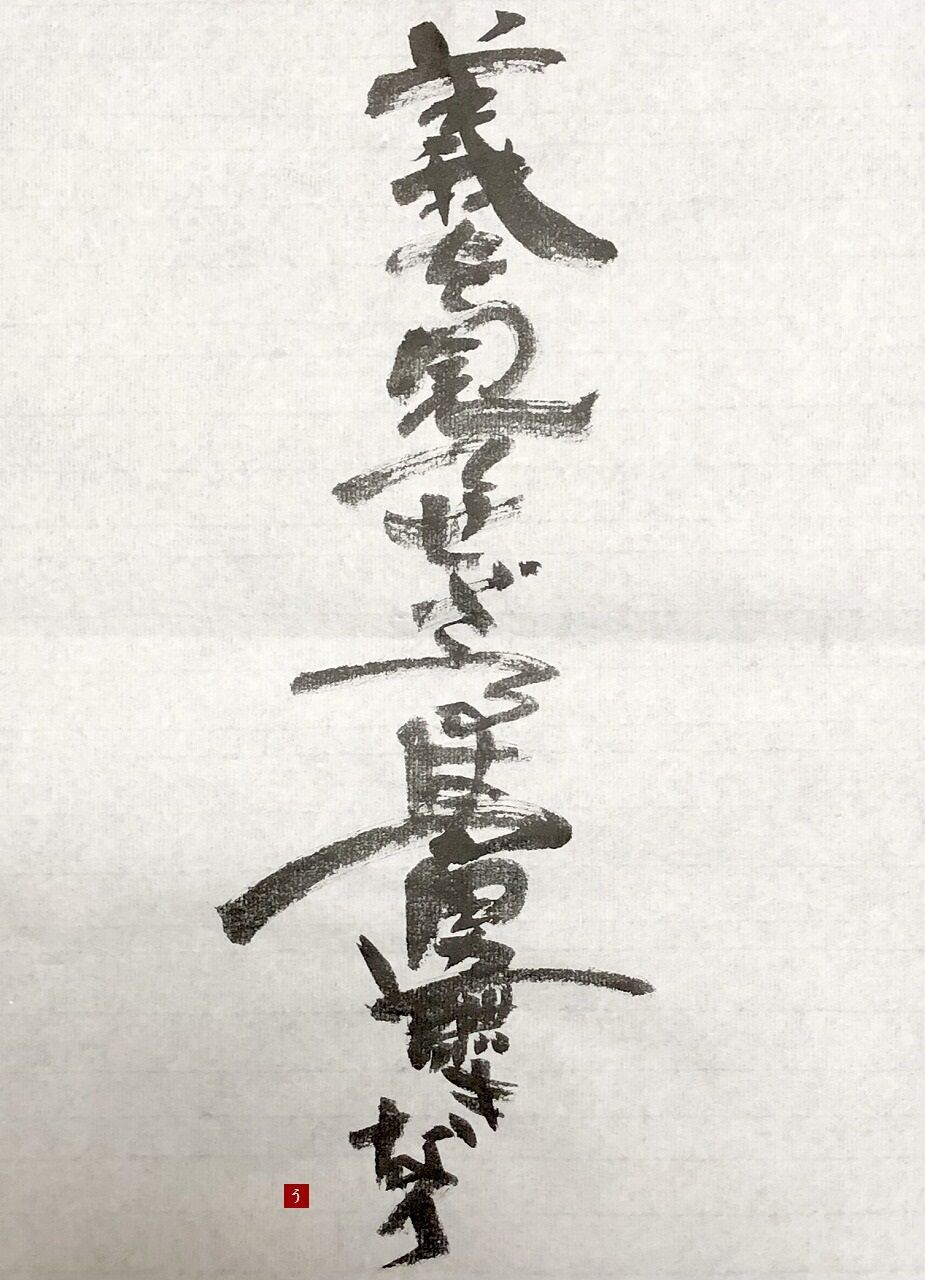 義を見てせざるは勇無きなり
う